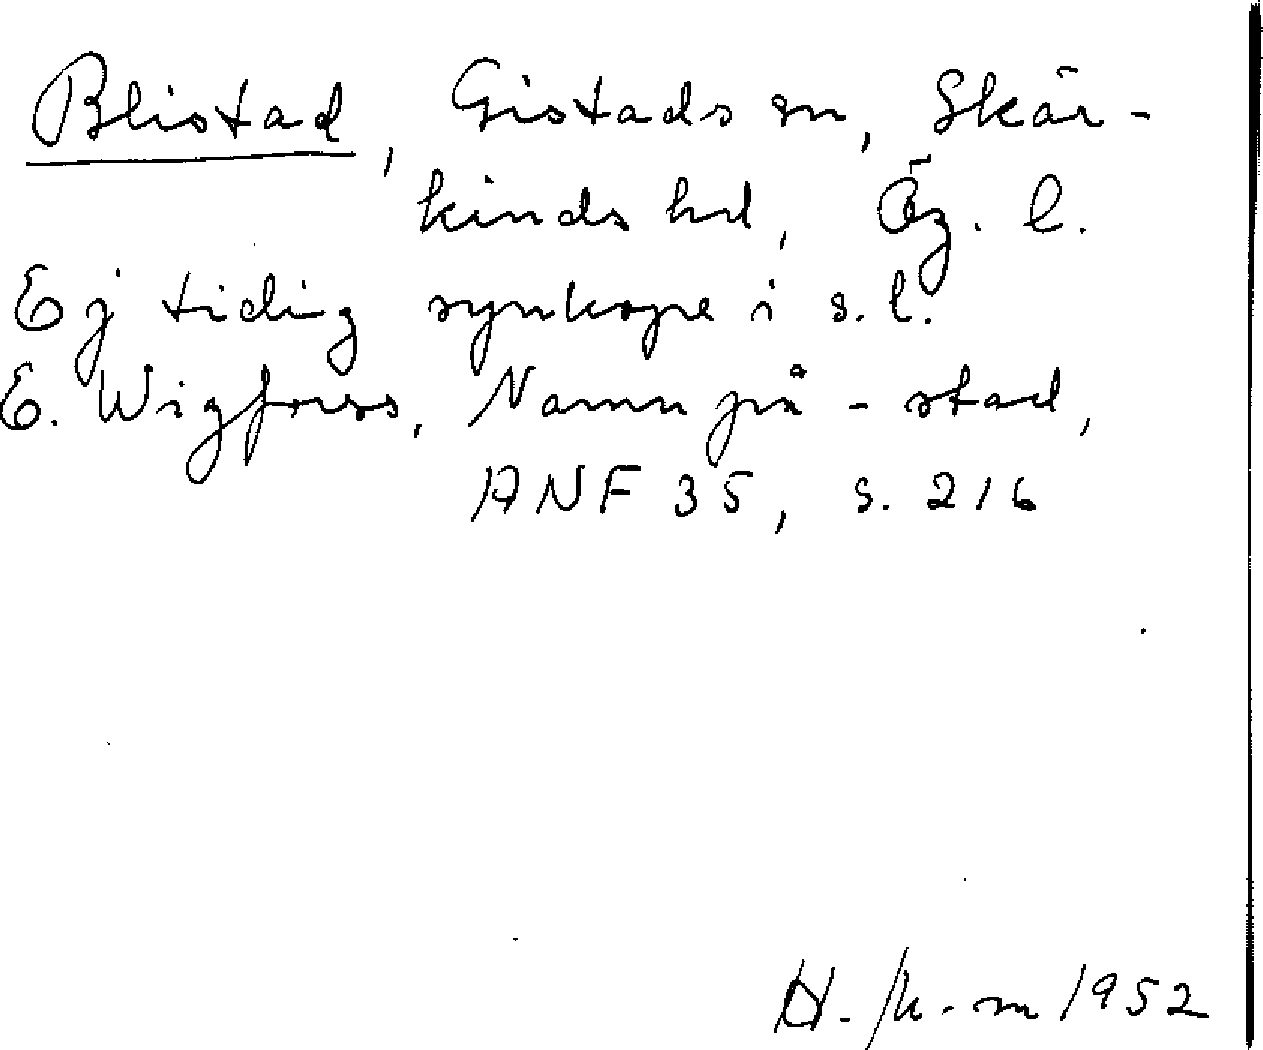 Blistad, Gistads sn, Skär-
kinds hd, Ög. l.
Ej tidig synkope i s.l.
E. Wigforss, Namn på -stad,
ANF 35, s. 216
1952